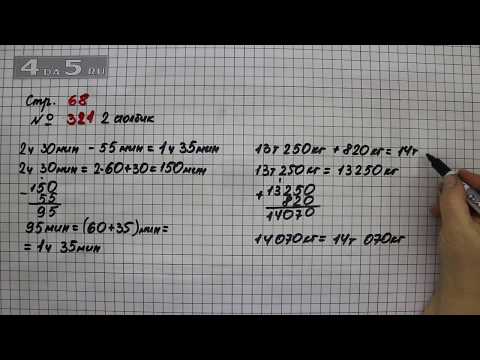 4 DA 5 RU
Стр. 68
№ 321 2 столбик
2ч 30мин - 55мин = 1ч 35мин
2ч 30мин = 2·60+30 = 150мин
- 150
55
95
95мин = (60+35)мин =
= 1ч 35мин
13т 250кг + 820кг = 14т
13т 250кг = 13250кг
+ 13250
820
14070
14070кг = 14т 070кг